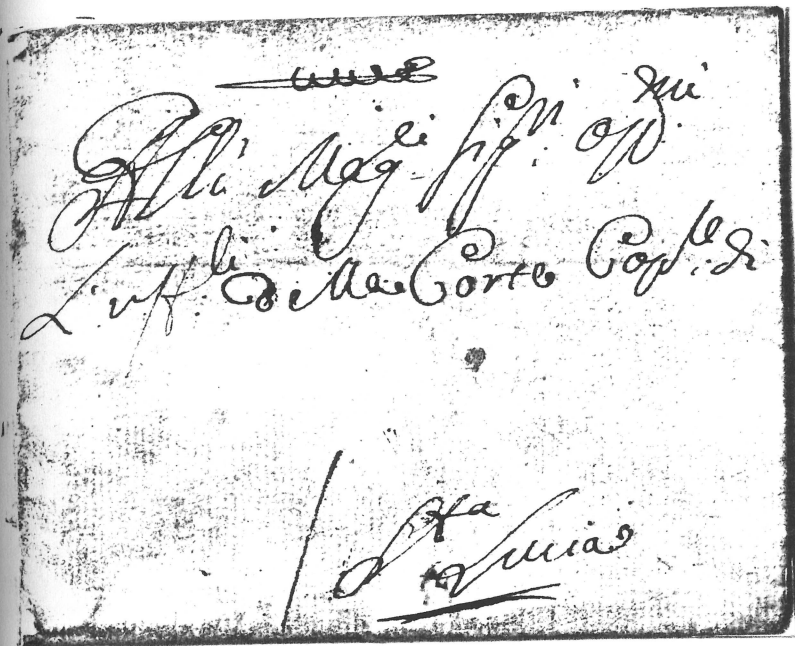 Alli Mag.li Sig.ri
L'uff.li della Corte Cap.le di
S.ta Lucia